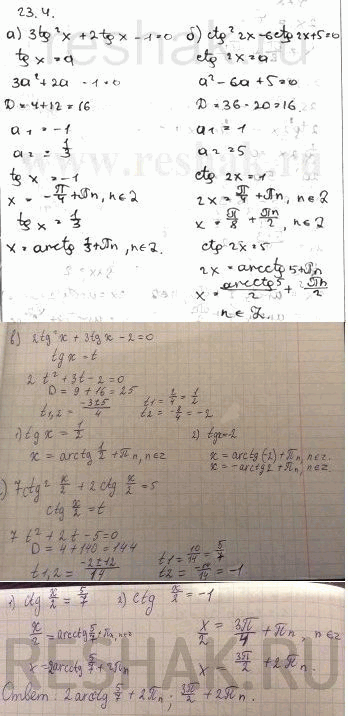 23.4.
а) 3tg²x + 2tgx - 1 = 0
tgx = a
3a² + 2a - 1 = 0
D = 4 + 12 = 16
a₁ = -1
a₂ = 1/3
tgx = -1
x = -π/4 + πn, n∈Z
tgx = 1/3
x = arctg 1/3 + πn, n∈Z.
б) ctg²2x - 6ctg2x + 5 = 0
ctg2x = a
a² - 6a + 5 = 0
D = 36 - 20 = 16
a₁ = 1
a₂ = 5
ctg 2x = 1
2x = π/4 + πn, n∈Z
x = π/8 + πn/2, n∈Z
ctg 2x = 5
2x = arcctg 5 + πn
x = arcctg5/2 + πn/2
n∈Z.
в) 2tg²x + 3tgx - 2 = 0
tgx = t
2t² + 3t - 2 = 0
D = 9 + 16 = 25
t₁,₂ = -3±5/4
t₁ = 2/4 = 1/2
t₂ = -8/4 = -2
1) tgx = 1/2
x = arctg 1/2 + πn, n∈z
2) tgx=-2
x = arctg(-2) + πn, n∈z.
x = -arctg2 + πn, n∈z.
) 7ctg² x/2 + 2ctg x/2 = 5
ctg x/2 = t
7t² + 2t - 5 = 0
D = 4 + 140 = 144
t₁,₂ = -2±12/14
t₁ = 10/14 = 5/7
t₂ = -14/14 = -1.
1) ctg x/2 = 5/7
x/2 = arcctg 5/7 + πn, n∈z
x = 2arcctg 5/7 + 2πn
2) ctg x/2 = -1
x/2 = 3π/4 + πn, n∈z
x = 3π/2 + 2πn.
Ответ: 2arcctg 5/7 + 2πn; 3π/2 + 2πn.
RESHAK.RU